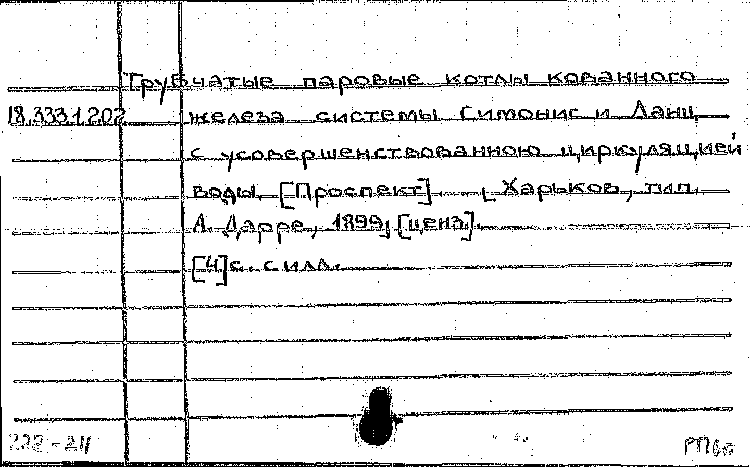 Трубчатые паровые котлы кованного
18.333.1.202 железа системы Симонис и Ланц
с усовершенствованною циркуляцией
воды. [Проспект]. Харьков, тип.
А. Дарре, 1899, [ценз].
[4] с. с илл.
232-211